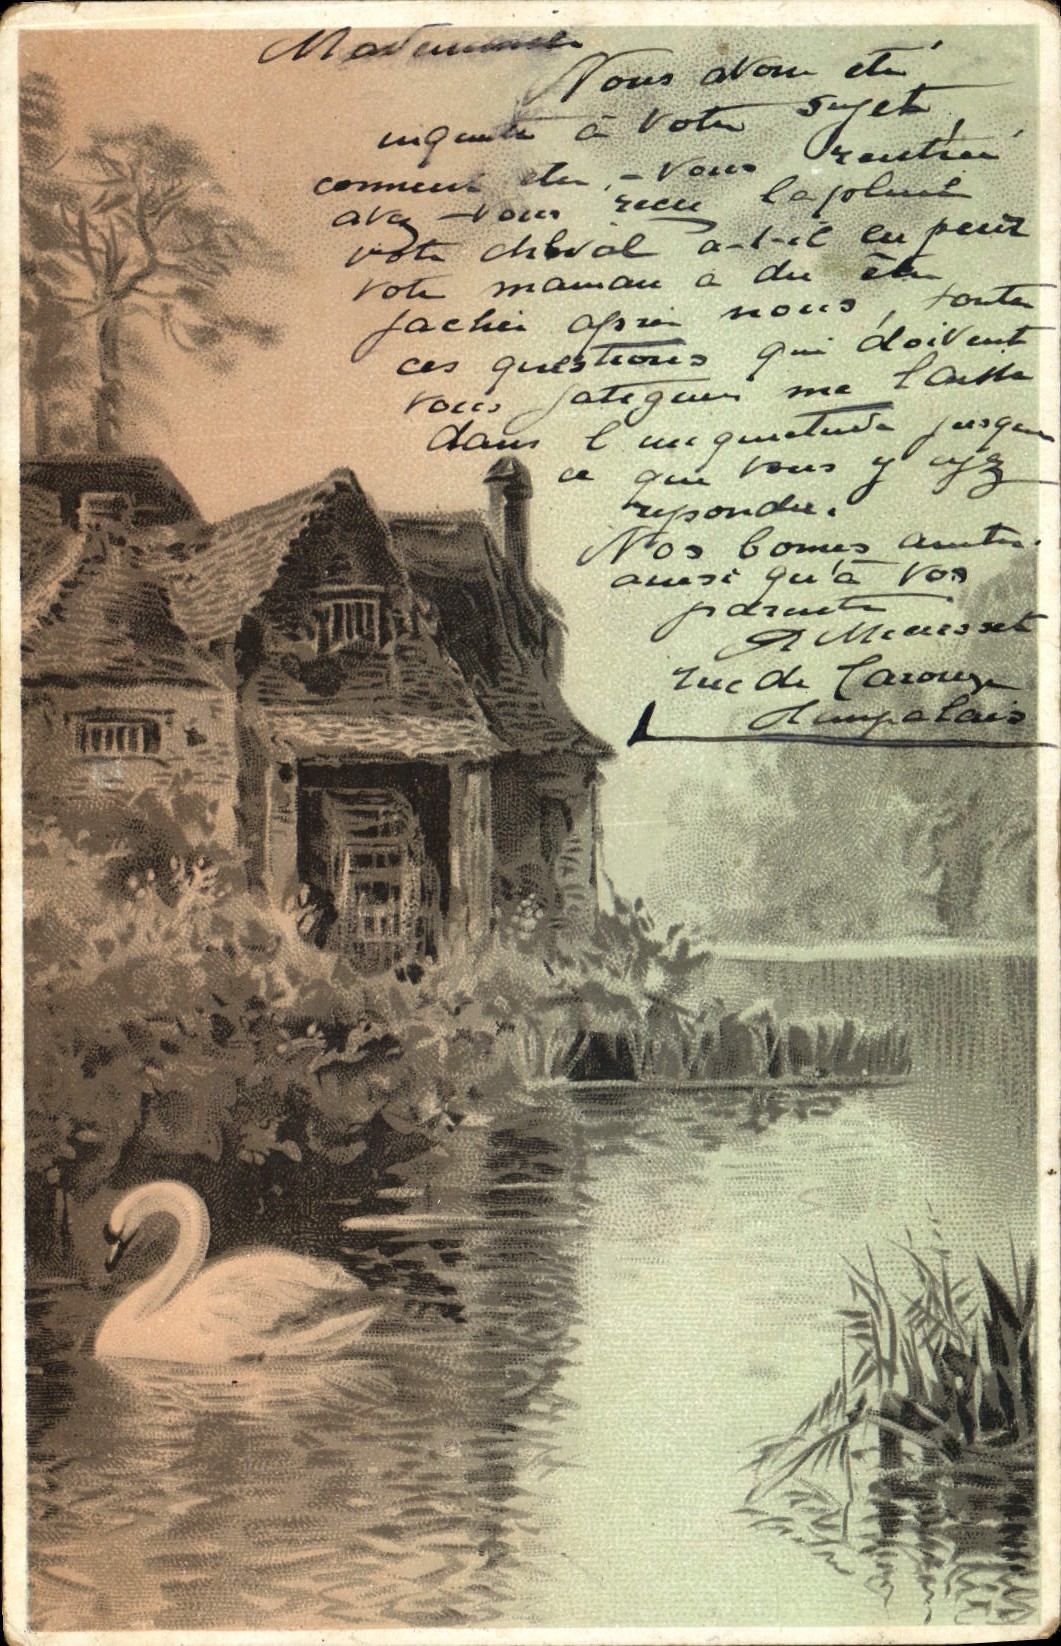 Nous avons eté
inquiets à votre sujet,
comment etes-vous rentrée
avez-vous recu la pluie
votre cheval a-t-il eu peur
votre maman a du être
fachée après nous, toutes
ces questions qui doivent
vous fatiguer me laisse
dans l'inquietude jusqua
ce que vous y ayez
repondu.
Nos bonnes amities
ainsi qu'à vos
parents
rue de